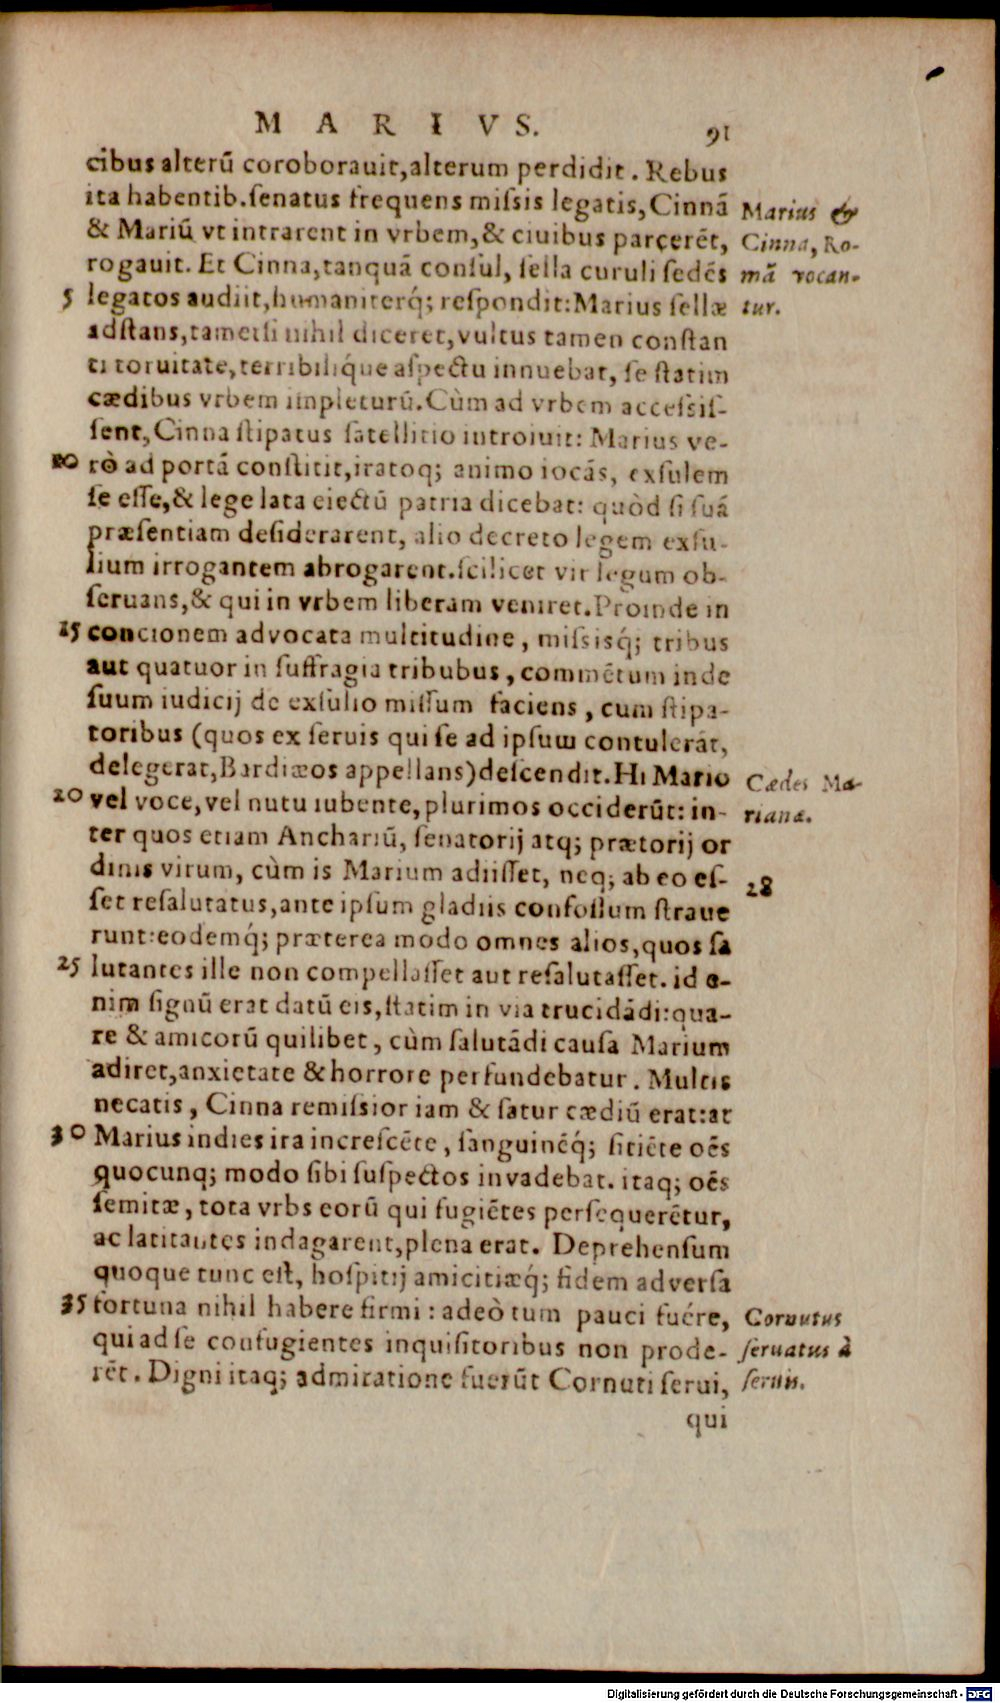 MARIVS. 91
cibus alterū coroborauit,alterum perdidit. Rebus
ita habentib.ſenatus frequens miſsis legatis, Cinnā
& Mariū vt intrarent in vrbem,& ciuibus parcerēt,
rogauit. Et Cinna,tanquā conſul, ſella curuli ſedēs
5 legatos audiit,humaniterq́; reſpondit: Marius ſellæ
adſtans,tametſi nihil diceret,vultus tamen conſtan
ti toruitate,terribiliq́ue aſpectu innuebat, ſe ſtatim
cædibus vrbem impleturū. Cùm ad vrbem acceſsiſ-
ſent, Cinna ſtipatus ſatellitio introiuit: Marius ve-
10 rò ad portā conſtitit,iratoq; animo iocās, exſulem
ſe eſſe,& lege lata eiectū patria dicebat: quòd ſi ſuā
præſentiam deſiderarent, alio decreto legem exſu-
lium irrogantem abrogarent.ſcilicet vir legum ob-
ſeruans,& qui in vrbem liberam veniret. Proinde in
15 concionem advocata multitudine, miſsisq́; tribus
aut quatuor in ſuffragia tribubus, commētum inde
ſuum iudicij de exſulio miſſum faciens, cum ſtipa-
toribus (quos ex ſeruis qui ſe ad ipſum contulerāt,
delegerat, Bardiæos appellans) deſcendit. Hi Mario
20 vel voce,vel nutu iubente, plurimos occiderūt: in-
ter quos etiam Anchariū, ſenatorij atq; prætorij or
dinis virum, cùm is Marium adiiſſet, neq; ab eo eſ-
ſet reſalutatus,ante ipſum gladiis confoſſum ſtraue
runt: eodemq́; præterea modo omnes alios,quos ſa
25 lutantes ille non compellaſſet aut reſalutaſſet. id e-
nim ſignū erat datū eis, ſtatim in via trucidādi: qua-
re & amicorū quilibet, cùm ſalutādi cauſa Marium
adiret,anxietate & horrore perfundebatur. Multis
necatis, Cinna remiſsior iam & ſatur cædiū erat: at
30 Marius indies ira increſcēte, ſanguinēq́; ſitiēte oēs
quocunq; modo ſibi ſuſpectos invadebat. itaq; oēs
ſemitæ, tota vrbs eorū qui fugiētes perſequerētur,
ac latitantes indagarent,plena erat. Deprehenſum
quoque tunc eſt, hoſpitij amicitiæq́; fidem adverſa
35 fortuna nihil habere firmi: adeò tum pauci fuére,
qui ad ſe confugientes inquiſitoribus non prode-
rēt. Digni itaq; admiratione fuerūt Cornuti ſerui,
qui
Marius &
Cinna, Ro-
mā vocan-
tur.
Cædes Ma-
rianæ.
28
Cornutus
ſeruatus à
ſeruis.
Digitalisierung gefördert durch die Deutsche Forschungsgemeinschaft - DFG